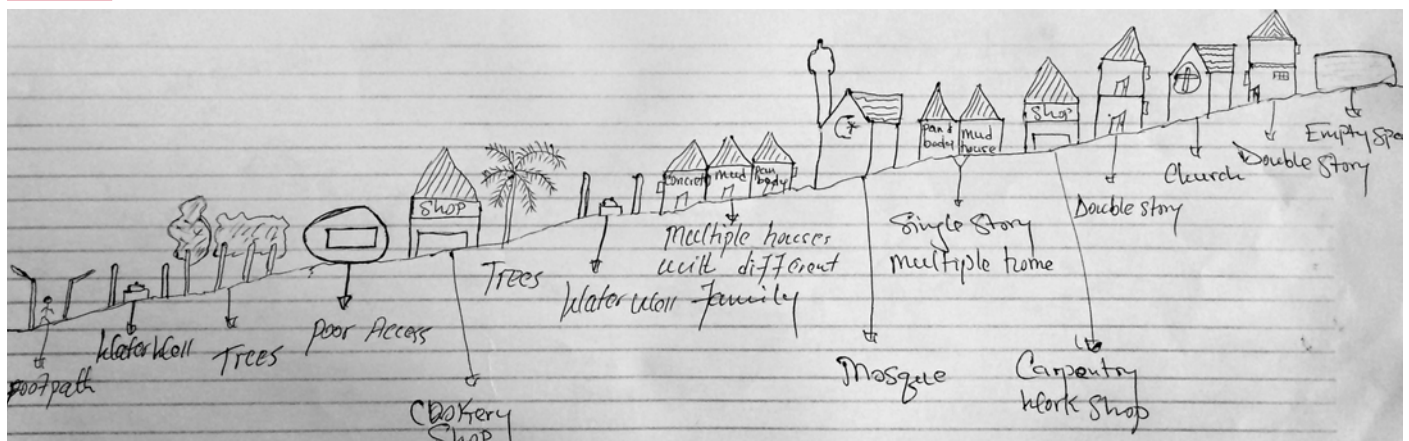 footpath
Water Well
Trees
Poor Access
Shop
Cookery
Shop
Trees
Water Well
Concrete
mud
pan
body
Multiple houses
with different
Family
Mosque
pan
body
Mud
house
Single Story
Multiple home
Shop
Carpentry
Work Shop
Double story
Church
Double Story
Empty Spa